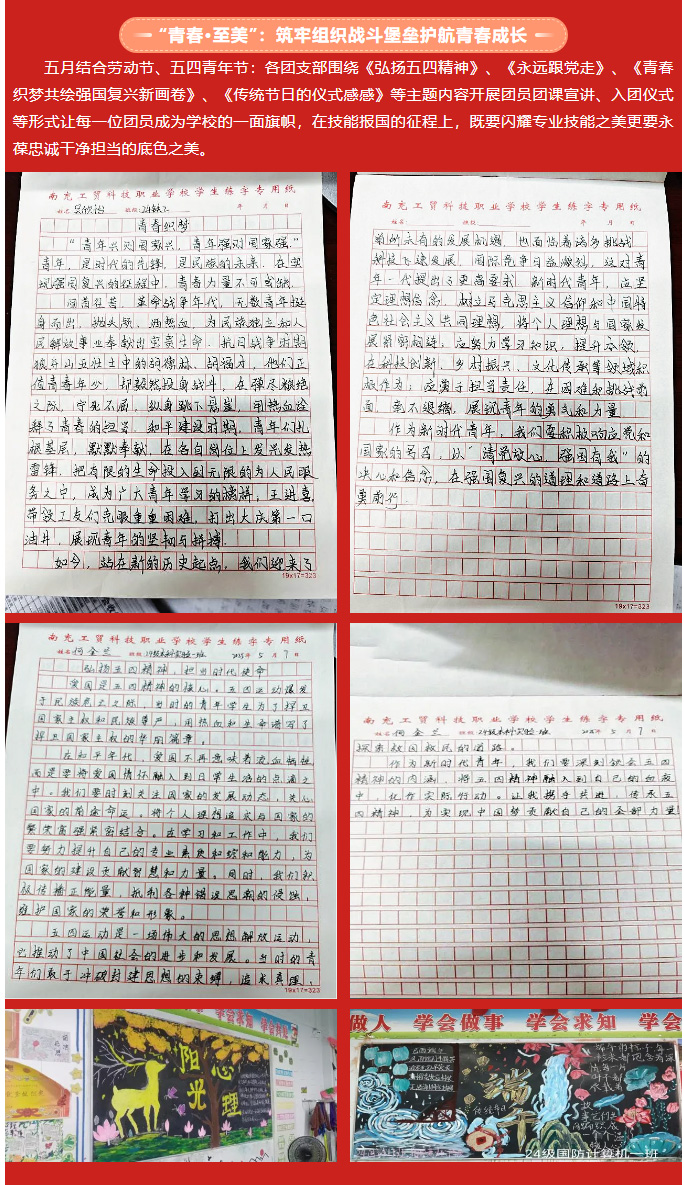 “青春·至美”：筑牢组织战斗堡垒护航青春成长
五月结合劳动节、五四青年节：各团支部围绕《弘扬五四精神》、《永远跟党走》、《青春
织梦共绘强国复兴新画卷》、《传统节日的仪式感感》等主题内容开展团员团课宣讲、入团仪式
等形式让每一位团员成为学校的一面旗帜，在技能报国的征程上，既要闪耀专业技能之美更要永
葆忠诚干净担当的底色之美。
南充工贸科技职业学校学生练字专用纸
姓名 班级 年 月 日
青春织梦
“青年兴则国家兴，青年强则国家强。”
青年，是时代的先锋，是民族的未来。在实
现强国复兴的征程中，青春力量不可或缺。
回首往昔，革命战争年代，无数青年挺
身而出，抛头颅、洒热血，为民族独立和人
民解放事业奉献出宝贵生命。抗日战争时期
狼牙山五壮士中的胡德林、胡福才，他们正
值青春年少，却毅然投身战斗，在弹尽粮绝
之际，宁死不屈，纵身跳下悬崖，用热血诠
释了青春的担当。和平建设时期，青年们扎
根基层，默默奉献，在各自岗位上发光发热
雷锋，把有限的生命投入到无限的为人民服
务之中，成为广大青年学习的榜样；王进喜
带领工友们克服重重困难，打出大庆第一口
油井，展现青年的坚韧与拼搏。
如今，站在新的历史起点，我们迎来了
19x17=323
南充工贸科技职业学校学生练字专用纸
姓名 班级 年 月 日
前所未有的发展机遇，也面临着诸多挑战
科技飞速发展，国际竞争日益激烈，这对青
年一代提出了更高要求。新时代青年，应坚
定理想信念，树立马克思主义信仰和中国特
色社会主义共同理想，将个人理想与国家发
展紧密相连；应努力学习知识，提升本领，
在科技创新、乡村振兴、文化传承等领域积
极作为；应勇于担当责任，在困难和挑战前
面，毫不退缩，展现青年的勇气和力量。
作为新时代青年，我们要积极响应党和
国家的号召，以“请党放心，强国有我”的
决心和信念，在强国复兴的道理和道路上奋
勇前行
19x17=323
南充工贸科技职业学校学生练字专用纸
姓名 何金兰 班级 24级本科实验一班 2025年 5月 7日
弘扬五四精神，担当时代使命
爱国是五四精神的核心。五四运动爆发
于民族危亡之际，当时的青年学生为了捍卫
国家主权和民族尊严，用热血和生命谱写了
捍卫国家主权的华丽篇章。
在和平年代，爱国不再意味着流血牺牲
而是要将爱国情怀融入到日常生活的点滴之
中。我们要时刻关注国家的发展动态，关心
国家的前途命运，将个人理想追求与国家的
繁荣富强紧密结合。在学习和工作中，我们
要努力提升自己的专业素质和综和能力，为
国家的建设贡献智慧和力量。同时，我们积
极传播正能量，抵制各种错误思潮的侵蚀，
维护国家的荣誉和形象。
五四运动是一场伟大的思想解放运动，
它推动了中国社会的进步和发展。当时的青
年们敢于冲破封建思想的束缚，追求真理、
19x17=323
南充工贸科技职业学校学生练字专用纸
姓名 何金兰 班级 24级本科实验一班 2025年 5月 7日
探索救国救民的道路。
作为新时代青年，我们要深刻领会五四
精神的内涵，将五四精神融入到自己的血液
中，化作实际行动。让我携手共进，传承五
四精神，为实现中国梦贡献自己的全部力量！
学会求知 学会
阳光心理
做人 学会做事 学会求知 学会
端午
传统节日
24级国防计算机一班